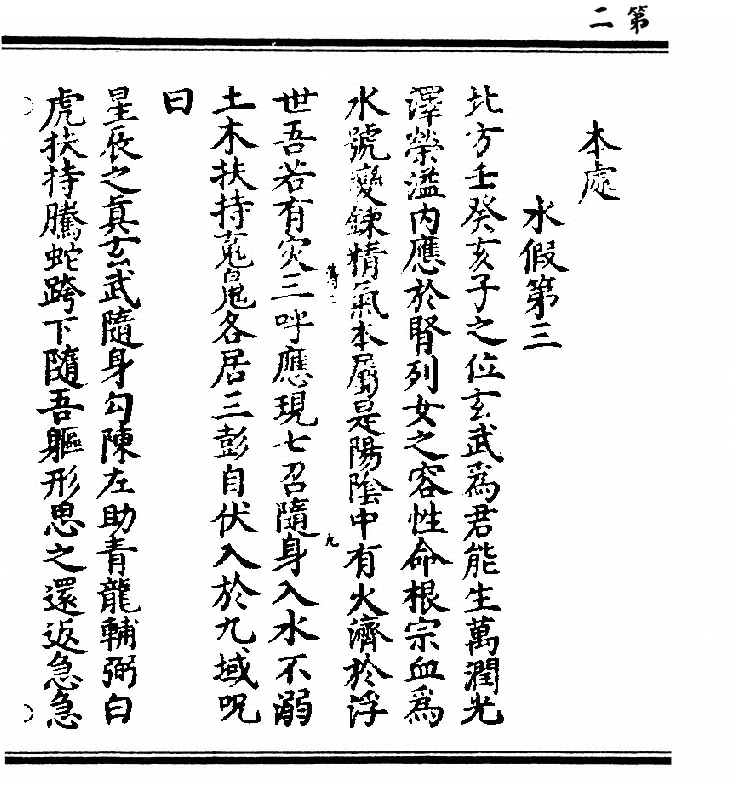 第二
本處
水假第三
北方壬癸亥子之位玄武為君能生萬潤光
澤榮溢内應於腎列女之容性命根宗血為
水號變鍊精氣本屬是陽陰中有火濟於浮
世吾若有灾三呼應現七召隨身入水不溺
土木扶持魂魄各居三彭自伏入於九域呪
曰
星辰之真玄武隨身勾陳左助青龍輔弼白
虎扶持騰蛇跨下隨吾軀形思之還返急急